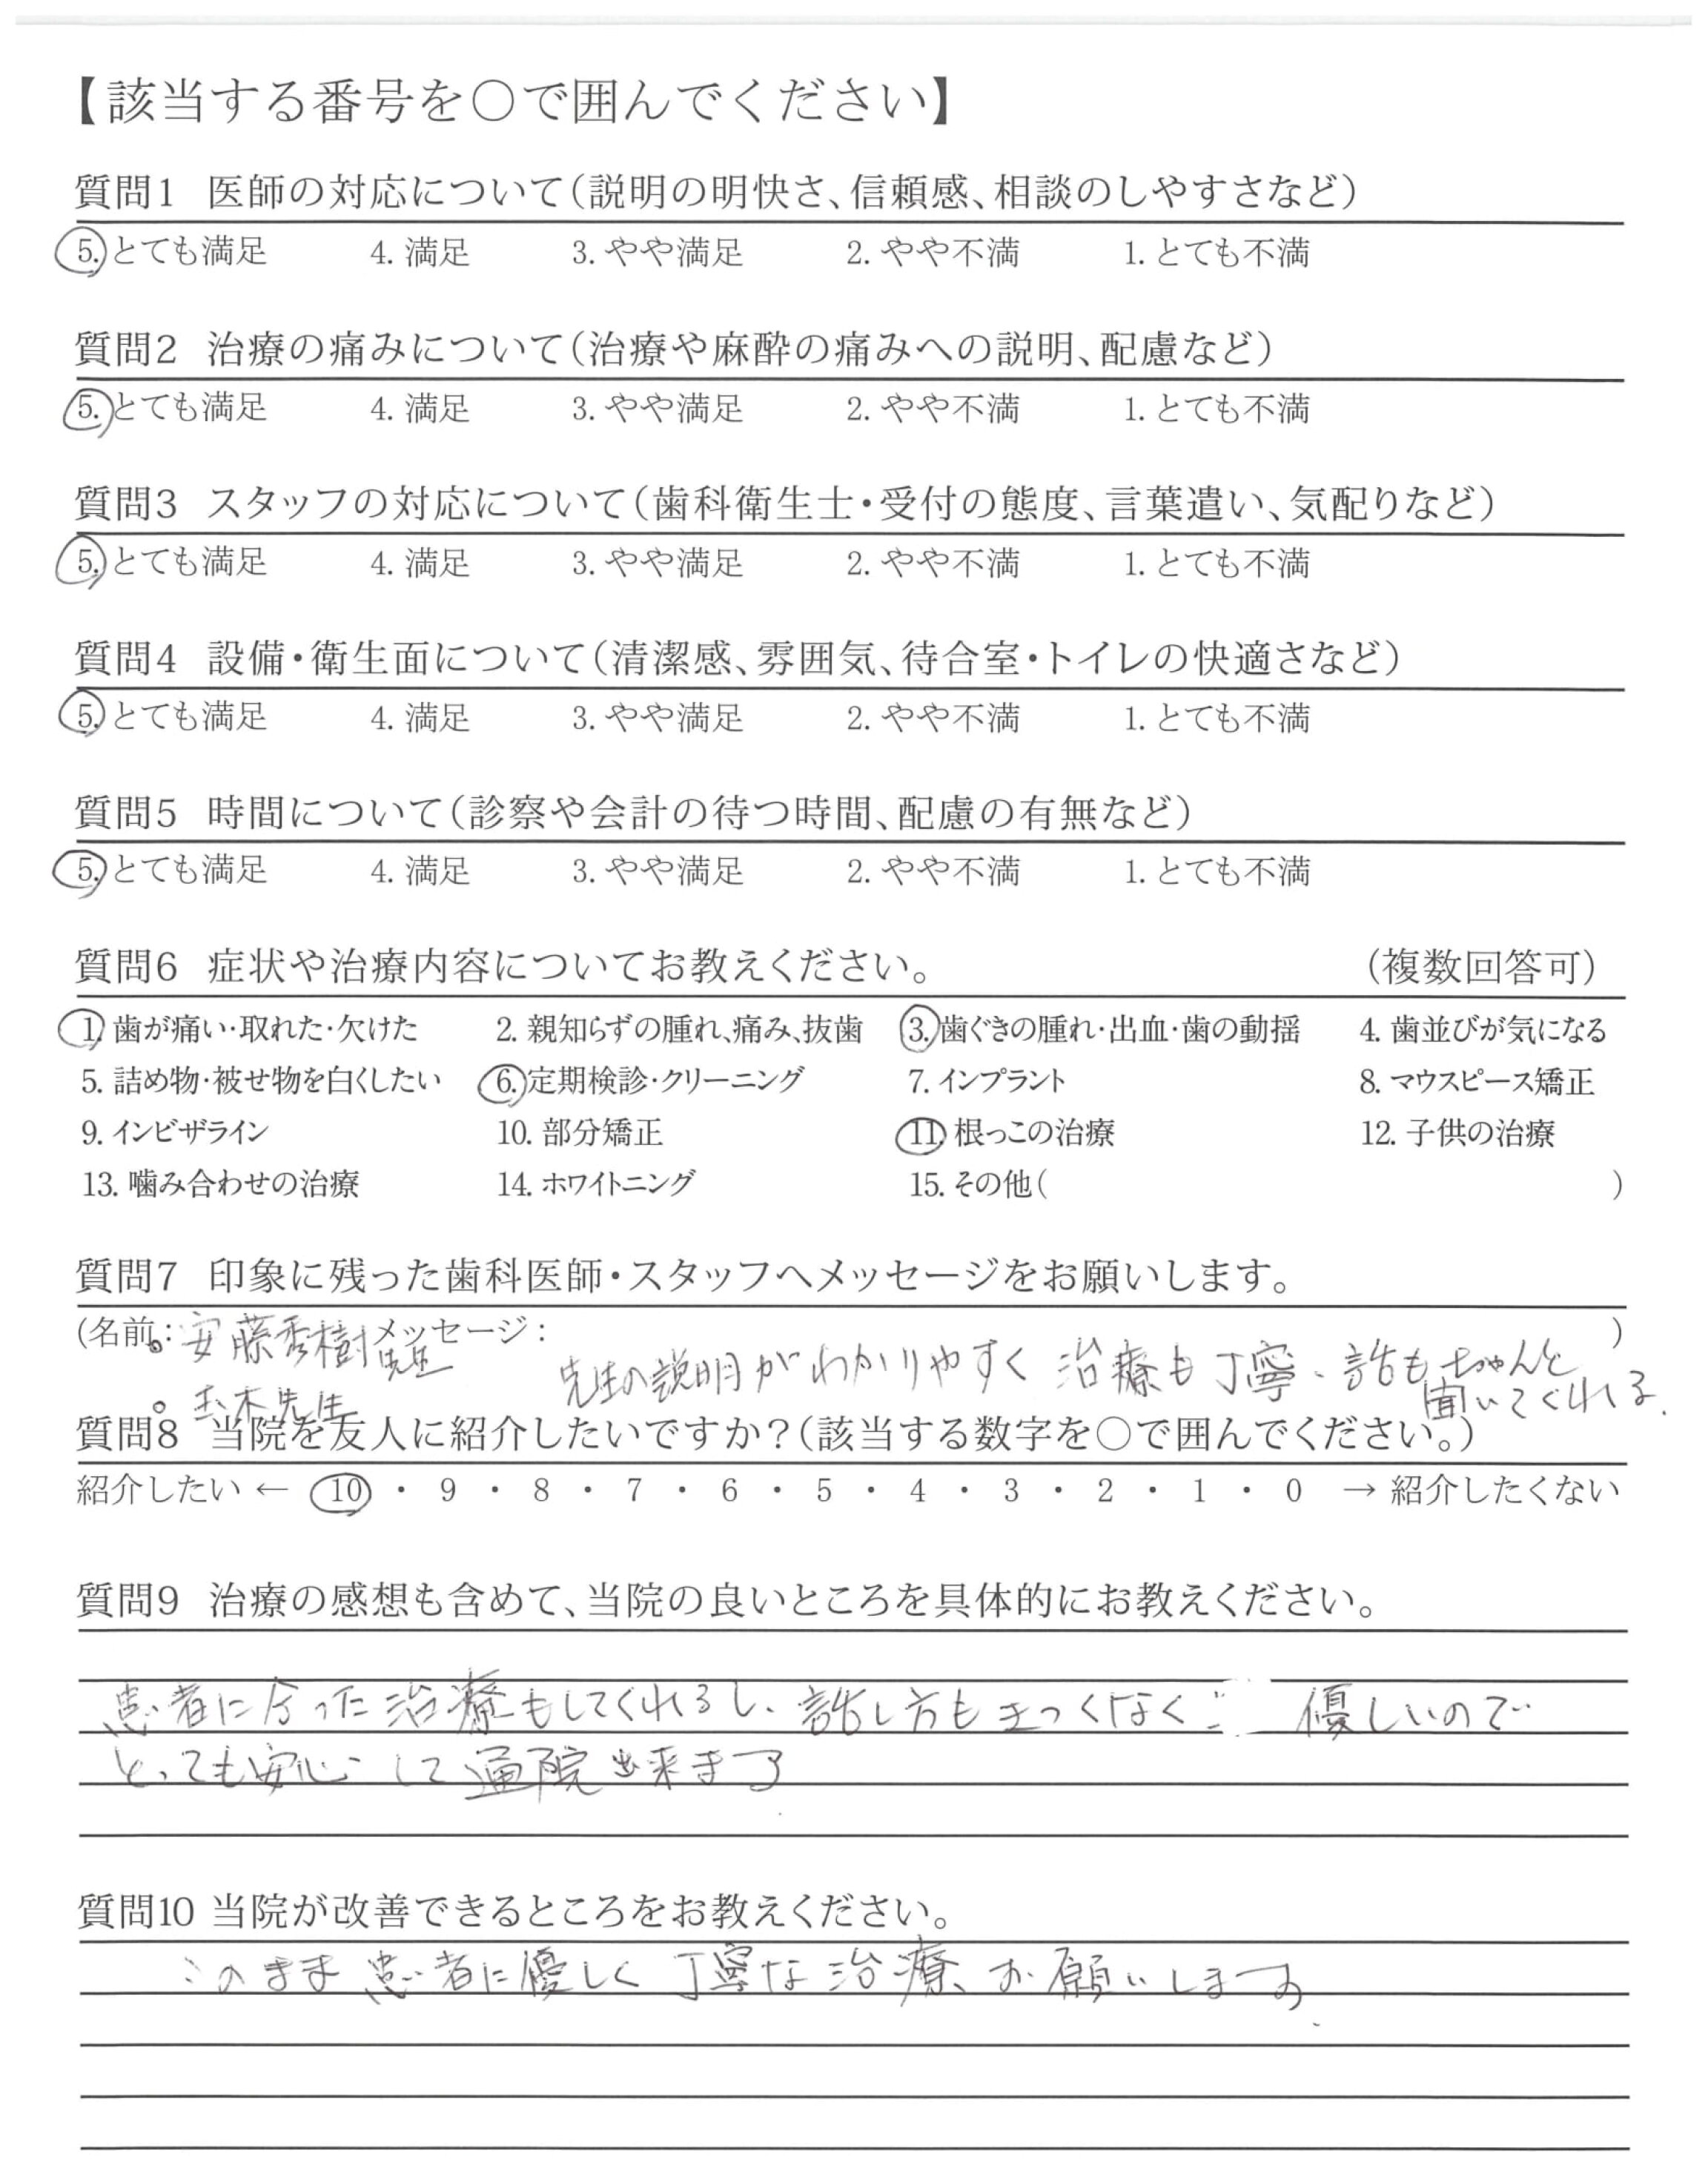 【該当する番号を○で囲んでください】
質問1 医師の対応について(説明の明快さ、信頼感、相談のしやすさなど)
5. とても満足 4. 満足 3. やや満足 2. やや不満 1. とても不満
質問2 治療の痛みについて(治療や麻酔の痛みへの説明、配慮など)
5. とても満足 4. 満足 3. やや満足 2. やや不満 1. とても不満
質問3 スタッフの対応について(歯科衛生士・受付の態度、言葉遣い、気配りなど)
5. とても満足 4. 満足 3. やや満足 2. やや不満 1. とても不満
質問4 設備・衛生面について(清潔感、雰囲気、待合室・トイレの快適さなど)
5. とても満足 4. 満足 3. やや満足 2. やや不満 1. とても不満
質問5 時間について(診察や会計の待つ時間、配慮の有無など)
5. とても満足 4. 満足 3. やや満足 2. やや不満 1. とても不満
質問6 症状や治療内容についてお教えください。 (複数回答可)
1. 歯が痛い・取れた・欠けた 2. 親知らずの腫れ、痛み、抜歯 3. 歯ぐきの腫れ・出血・歯の動揺 4. 歯並びが気になる
5. 詰め物・被せ物を白くしたい 6. 定期検診・クリーニング 7. インプラント 8. マウスピース矯正
9. インビザライン 10. 部分矯正 11. 根っこの治療 12. 子供の治療
13. 噛み合わせの治療 14. ホワイトニング 15. その他( )
質問7 印象に残った歯科医師・スタッフへメッセージをお願いします。
(名前:。安藤秀樹先生 メッセージ: )
先生の説明がわかりやすく 治療も丁寧、話もちゃんと
聞いてくれる.
。木先生
質問8 当院を友人に紹介したいですか?(該当する数字を○で囲んでください。)
紹介したい ← 10 ・ 9 ・ 8 ・ 7 ・ 6 ・ 5 ・ 4 ・ 3 ・ 2 ・ 1 ・ 0 → 紹介したくない
質問9 治療の感想も含めて、当院の良いところを具体的にお教えください。
患者に合った治療もしてくれるし、話し方もきつくはなく 優しいので
とっても安心して通院出来ます
質問10 当院が改善できるところをお教えください。
このまま患者に優しく丁寧な治療、お願いします.